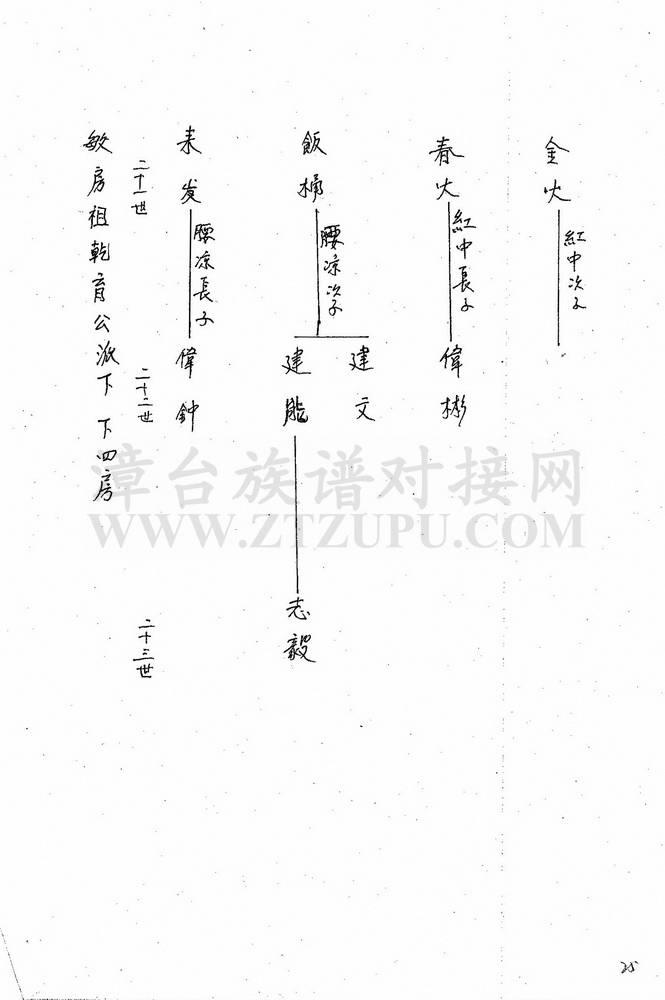 金火
紅中次子
春火
紅中長子
偉彬
飯桶
腰凉次子
建文
建龍
志毅
来发
腰凉長子
偉鈡
二十一世
二十二世
二十三世
敏房祖乾育公派下 下四房
漳台族谱对接网
WWW.ZTZUPU.COM
25